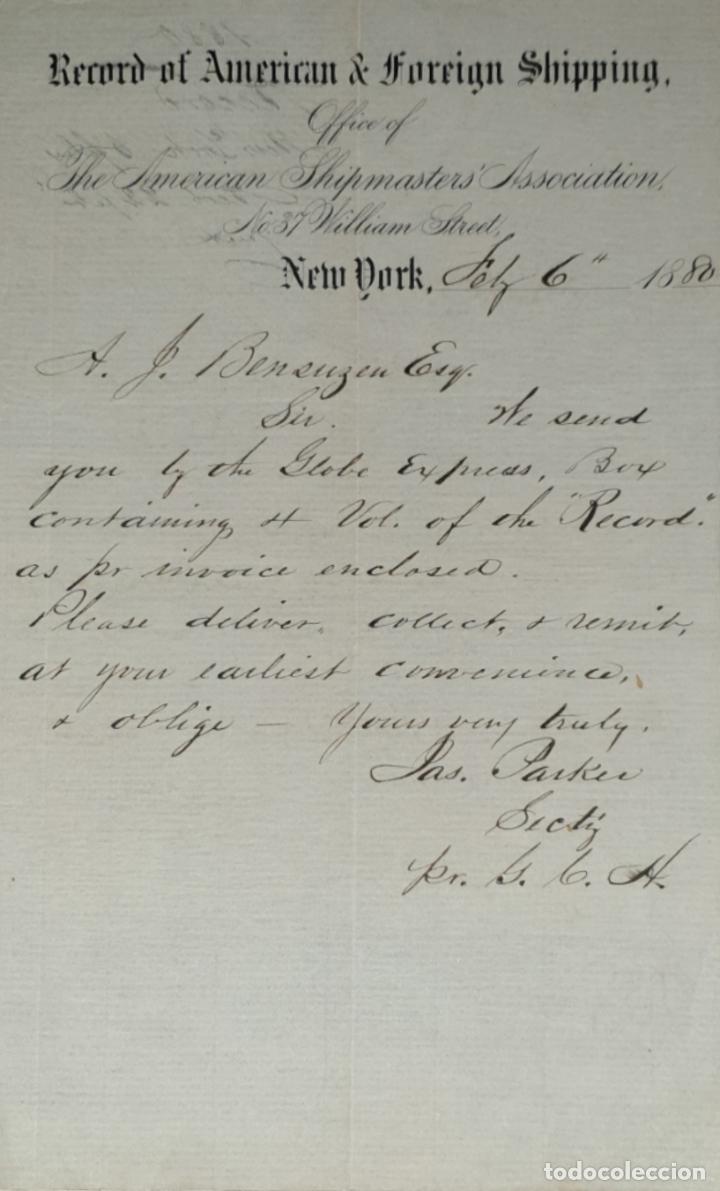 Record of American & Foreign Shipping.
Office of
The American Shipmasters' Association,
No. 37 William Street,
New York, Feby 6" 1880
A. J. Bensuzen Esq.
Sir. We send
you by the Globe Express, Box
containing 4 Vol. of the "Record".
as pr invoice enclosed.
Please deliver, collect, & remit,
at your earliest convenience,
& oblige — Yours very truly.
Jas. Parker
Secty
pr. G. C. H.
todocoleccion